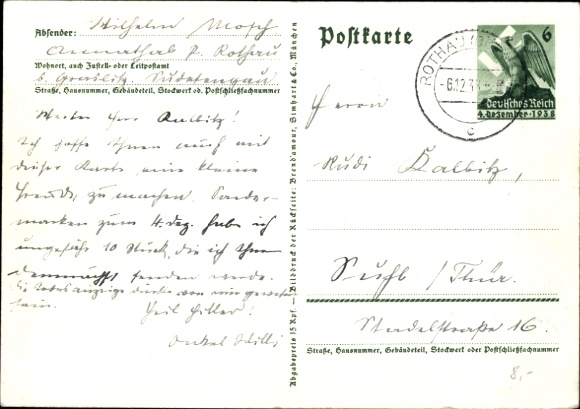 Absender: Wilhelm Mosch
Annathal p. Rothau
Wohnort, auch Zustell- oder Leitpostamt
b. Graslitz Sudetengau
Straße, Hausnummer, Gebäudeteil, Stockwerk od. Postschließfachnummer
Werter Herr
Ich hoffe Ihnen auch mit
dieser Karte eine kleine
Freude zu machen. Sonder-
marken zum 4. Dez. habe ich
ungefähr 10 Stück, die ich Ihnen
demnächst senden werde.
von mir gewesen
sein.
Heil Hitler!
Onkel Willi
Abgabepreis 15 Rpf. Bilddruck der Rückseite: Brend'amour, Simhart & Co., München
Postkarte
6
Deutsches Reich
4. Dezember · 1938
ROTHAU
-6.12.38
c
Herrn
Rudi Kalbitz,
Suhl / Thür.
Stadelstraße 16.
Straße, Hausnummer, Gebäudeteil, Stockwerk oder Postschließfachnummer
8,-